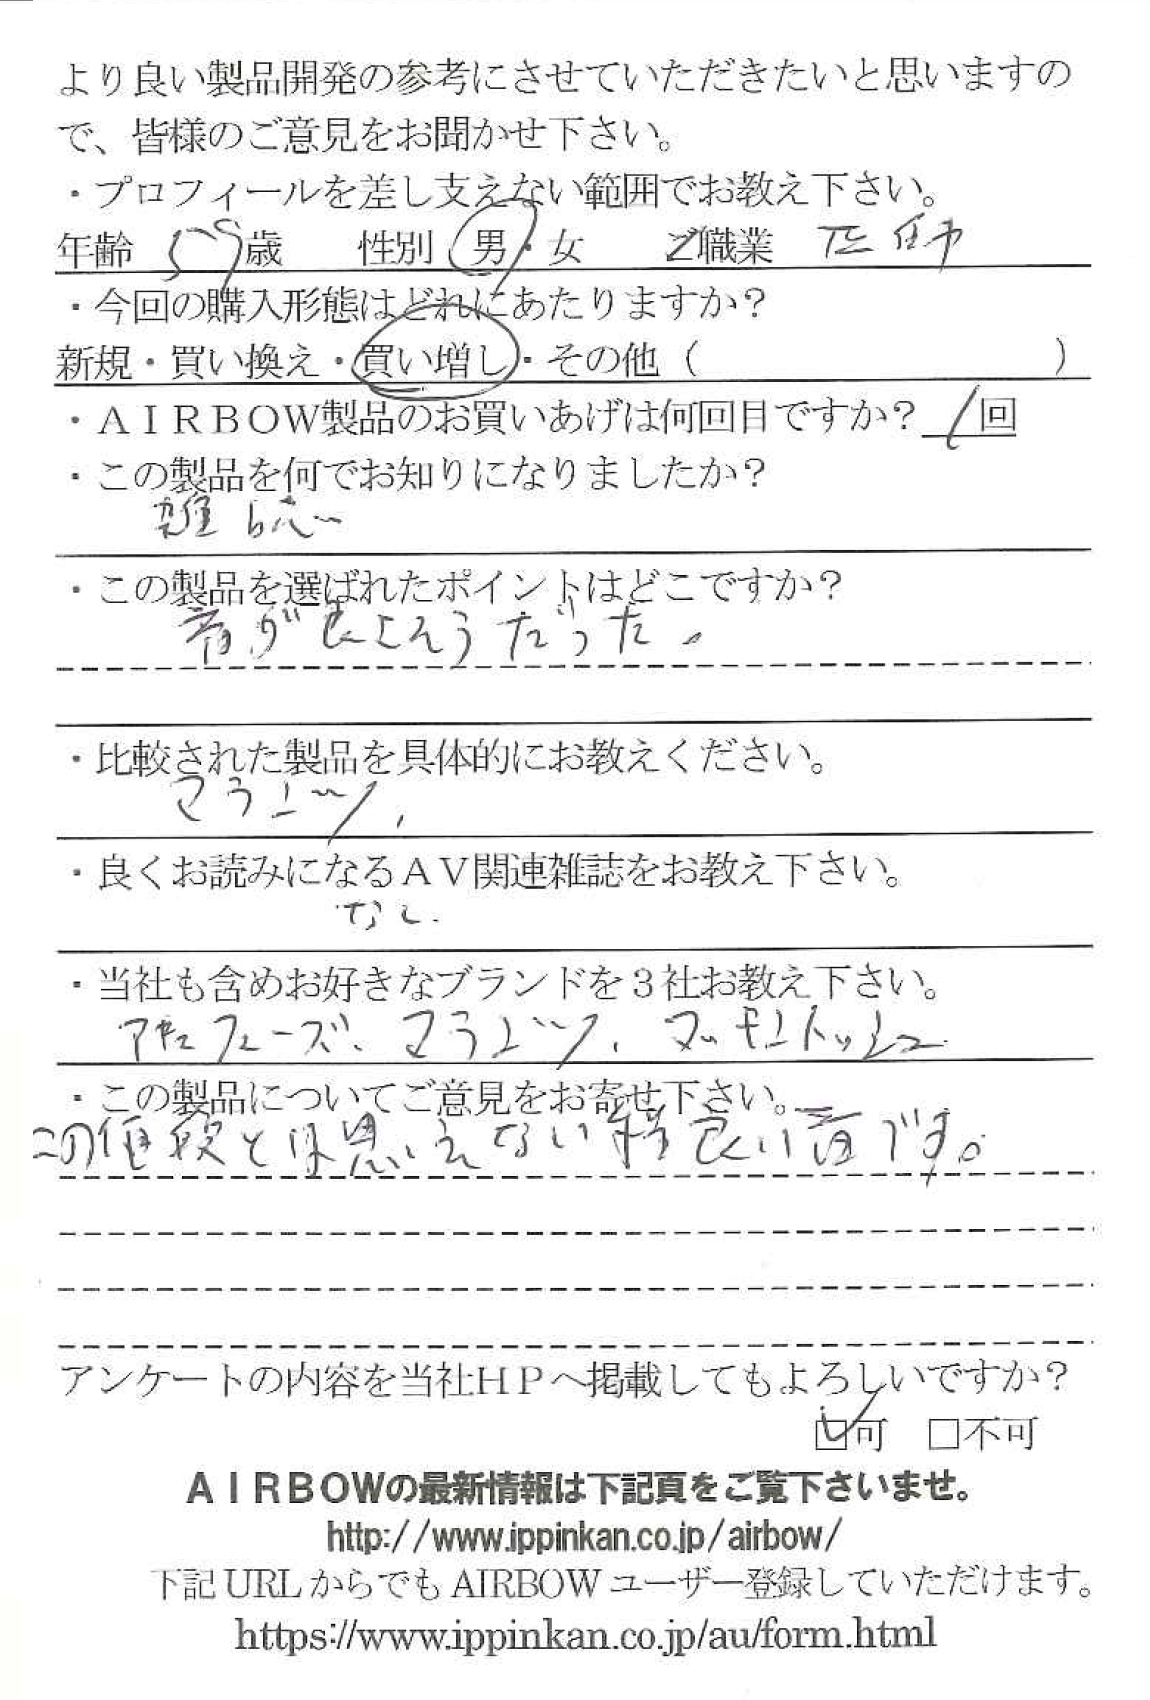 より良い製品開発の参考にさせていただきたいと思いますの
で、皆様のご意見をお聞かせ下さい。
・プロフィールを差し支えない範囲でお教え下さい。
年齢 59歳 性別 男・女 ご職業 医師
・今回の購入形態はどれにあたりますか？
新規・買い換え・買い増し・その他（ ）
・ＡＩＲＢＯＷ製品のお買いあげは何回目ですか？ 1回
・この製品を何でお知りになりましたか？
雑誌
・この製品を選ばれたポイントはどこですか？
音が良さそうだった。
・比較された製品を具体的にお教えください。
マランツ、
・良くお読みになるＡＶ関連雑誌をお教え下さい。
なし.
・当社も含めお好きなブランドを３社お教え下さい。
アキュフェーズ、マランツ、マッキントッシュ
・この製品についてご意見をお寄せ下さい。
この値段とは思いえない様良い音です。
アンケートの内容を当社ＨＰへ掲載してもよろしいですか？
☑可 □不可
ＡＩＲＢＯＷの最新情報は下記頁をご覧下さいませ。
http://www.ippinkan.co.jp/airbow/
下記 URL からでも AIRBOW ユーザー登録していただけます。
https://www.ippinkan.co.jp/au/form.html